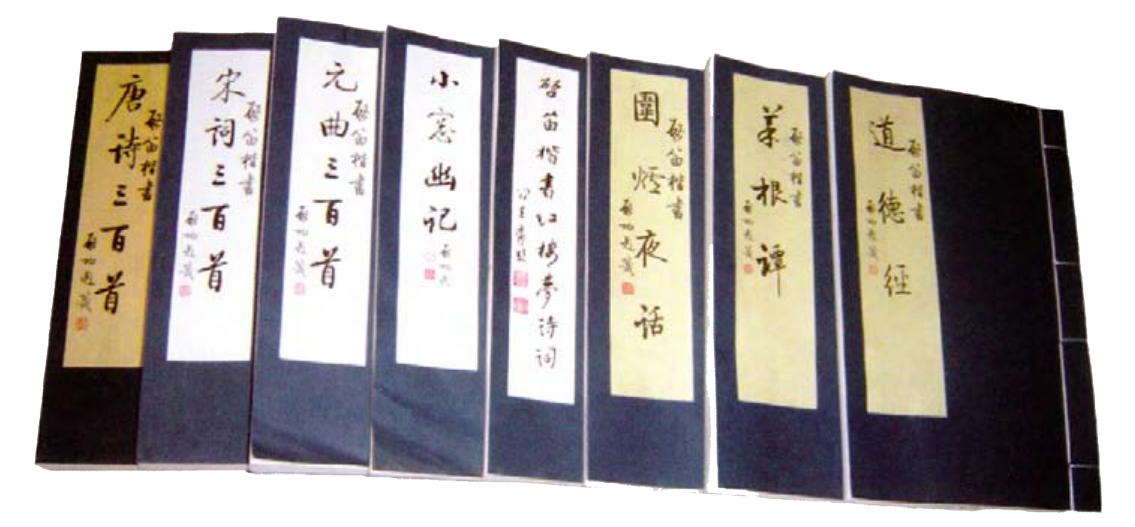 唐诗三百首
启笛楷书
启功题签
宋词三百首
启笛楷书
启功题签
元曲三百首
启笛楷书
启功题签
小窗幽记
启功题
启笛楷书红楼梦诗词
圍炉夜话
启笛楷书
启功题签
菜根谭
启笛楷书
启功题签
道德经
启笛楷书
启功题签